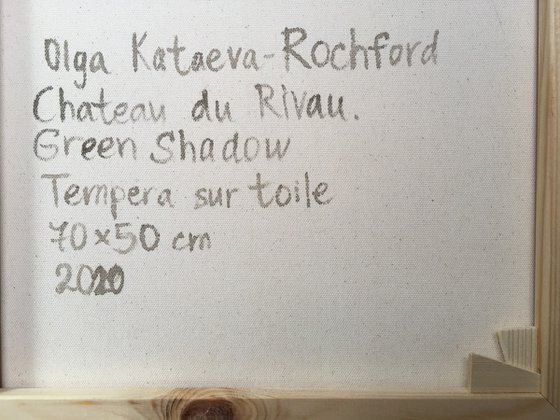 Olga Kataeva-Rochford
Chateau du Rivau.
Green Shadow
Tempera sur toile
70×50 cm
2020